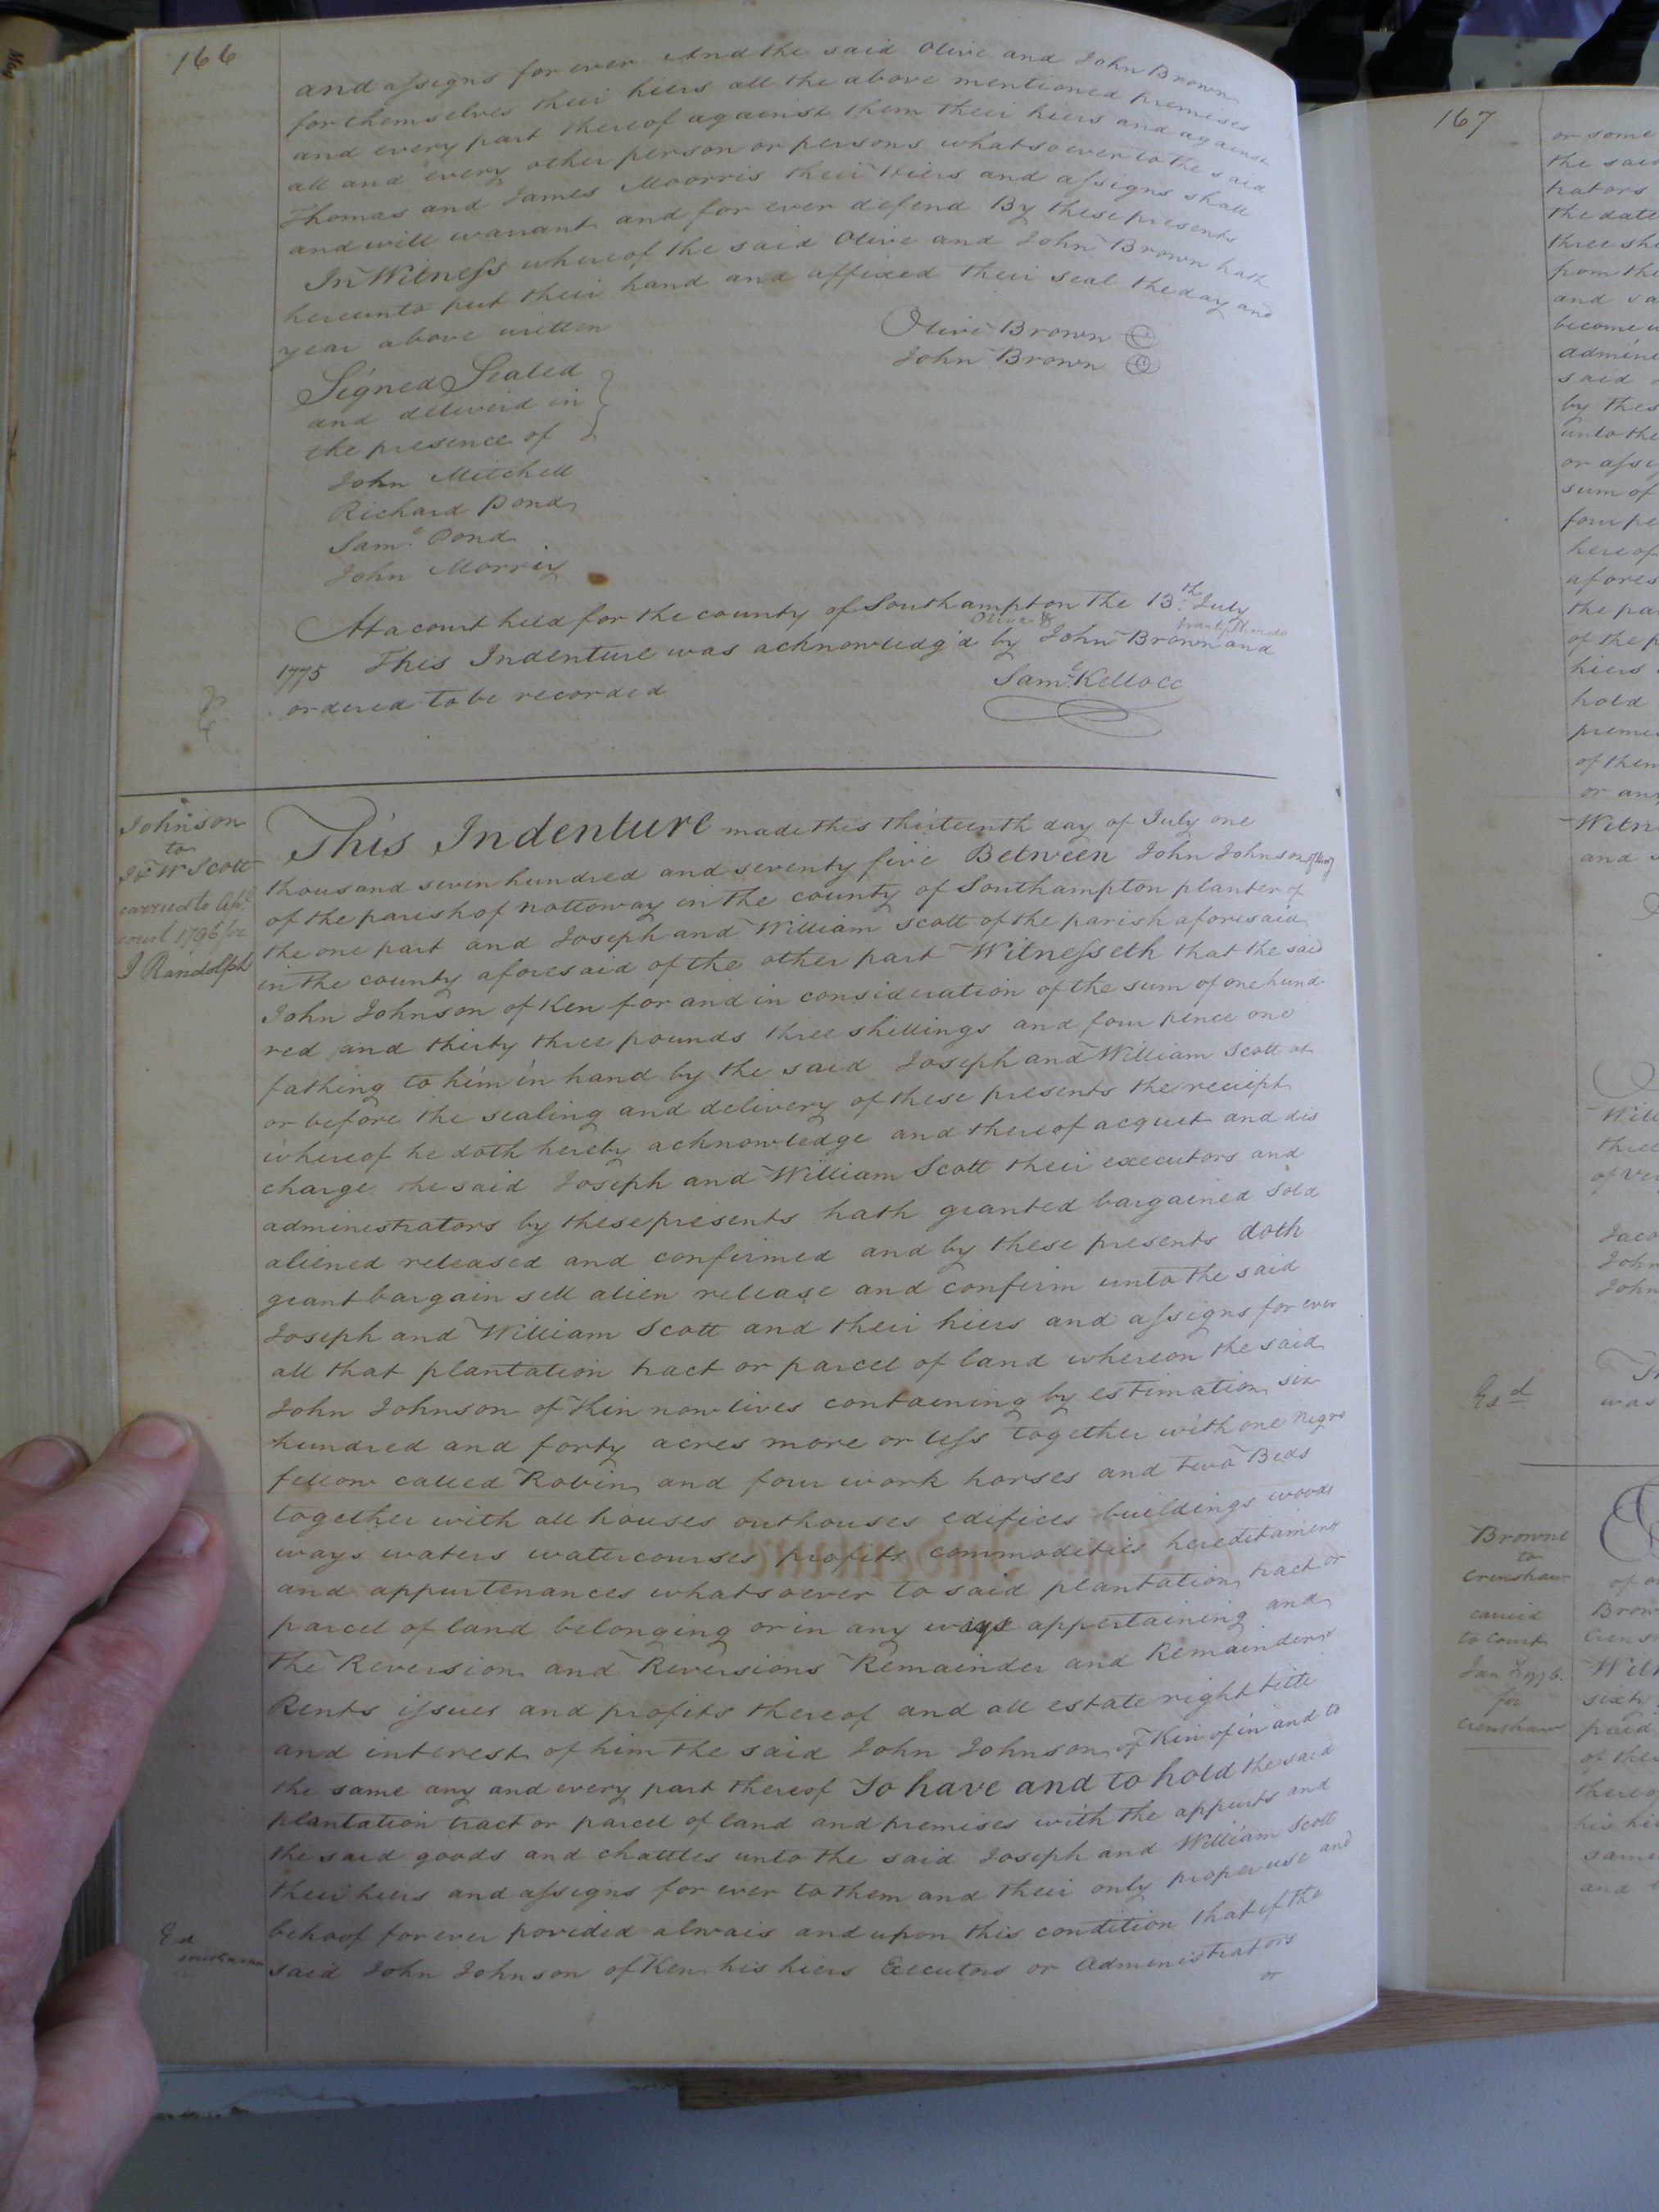 166
and assigns for ever And the said Olive and John Brown
for themselves their hiers all the above mentioned premises
and every part thereof against them their hiers and against
all and every other person or persons whatsoever to the said
Thomas and James Moorris their Hiers and assigns shall
and will warrant and for ever defend By these presents
In Witness whereof the said Olive and John Brown hath
hereunto put their hand and affixed their seal the day and
year above written
Olive Brown
John Brown
Signed Sealed
and deliverd in
the presence of
John Mitchell
Richard Pond
Saml. Pond
John Morris
At a court held for the county of Southampton the 13th. July
1775 This Indenture was acknowledg'd by Olive & John Brown party thereto and
ordered to be recorded
Saml. Kello CC
Johnson
to
J & W Scott
carried to
court 1796 for
J Randolph
This Indenture made this thirteenth day of July one
thousand seven hundred and seventy five Between John Johnson of Keng
of the parish of nottoway in the county of Southampton planter of
the one part and Joseph and William Scott of the parish aforesaid
in the county aforesaid of the other part Witnesseth that the said
John Johnson of Ken for and in consideration of the sum of one hund
red and thirty three pounds three shillings and four pence one
fathing to him in hand by the said Joseph and William Scott at
or before the sealing and delivery of these presents the reciept
whereof he doth hereby acknowledge and thereof acquet and dis
charge the said Joseph and William Scott their executors and
administrators by these presents hath granted bargained sold
aliened released and confirmed and by these presents doth
grant bargain sell alien release and confirm unto the said
Joseph and William Scott and their hiers and assigns for ever
all that plantation tract or parcel of land whereon the said
John Johnson of Kin now lives containing by estimation six
hundred and forty acres more or less together with one negro
fellow called Robin and four work horses and two Beds
together with all houses outhouses edifices buildings woods
ways waters watercourses profits commodities hereditaments
and appurtenances whatsoever to said plantation tract or
parcel of land belonging or in any ways appertaining and
the Reversion and Reversions Remainder and Remainders
Rents issues and profits thereof and all estate right title
and interest of him the said John Johnson of Kin of in and to
the same any and every part thereof To have and to hold the said
plantation tract or parcel of land and premises with the appurts and
the said goods and chattles unto the said Joseph and William Scott
their hiers and assigns for ever to them and their only proper use and
behoof forever porvided alwais and upon this condition that if the
said John Johnson of Ken his hiers Executors or Administrators
or
167
or some
the said
trators
the date
three shi
from the
and sa
become u
admini
said
by thes
unto the
or assi
sum of
four pe
hereof
afores
the par
of the p
hiers
hold
premi
of them
or any
Witn
and s
Will
three
of Vir
Jaco
John
John
Exd
was
Browne
to
Crenshaw
carried
to Court
for
Crenshaw
Brow
Crens
Witn
sixty
paid
of the
thereo
his hie
same
and